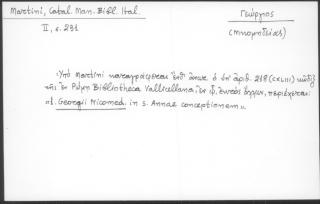 Martini, Catal. Man. Bibl. Ital.
II, s. 231
Γεώργιος
(Νικομηδείας)
Ὑπὸ Martini καταγράφεται ὁ ὑπ' ἀριθ. 218 (CXLIII) κῶδιξ
τῆς ἐν Ῥώμῃ Bibliotheca Vallicellana, ἐν ᾧ, περιέχεται:
"1. Georgii Nicomed. in s. Annae conceptionem".